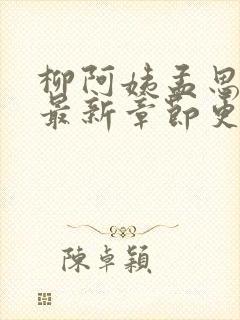 柳阿姨孟思
最新章節更
陳卓穎